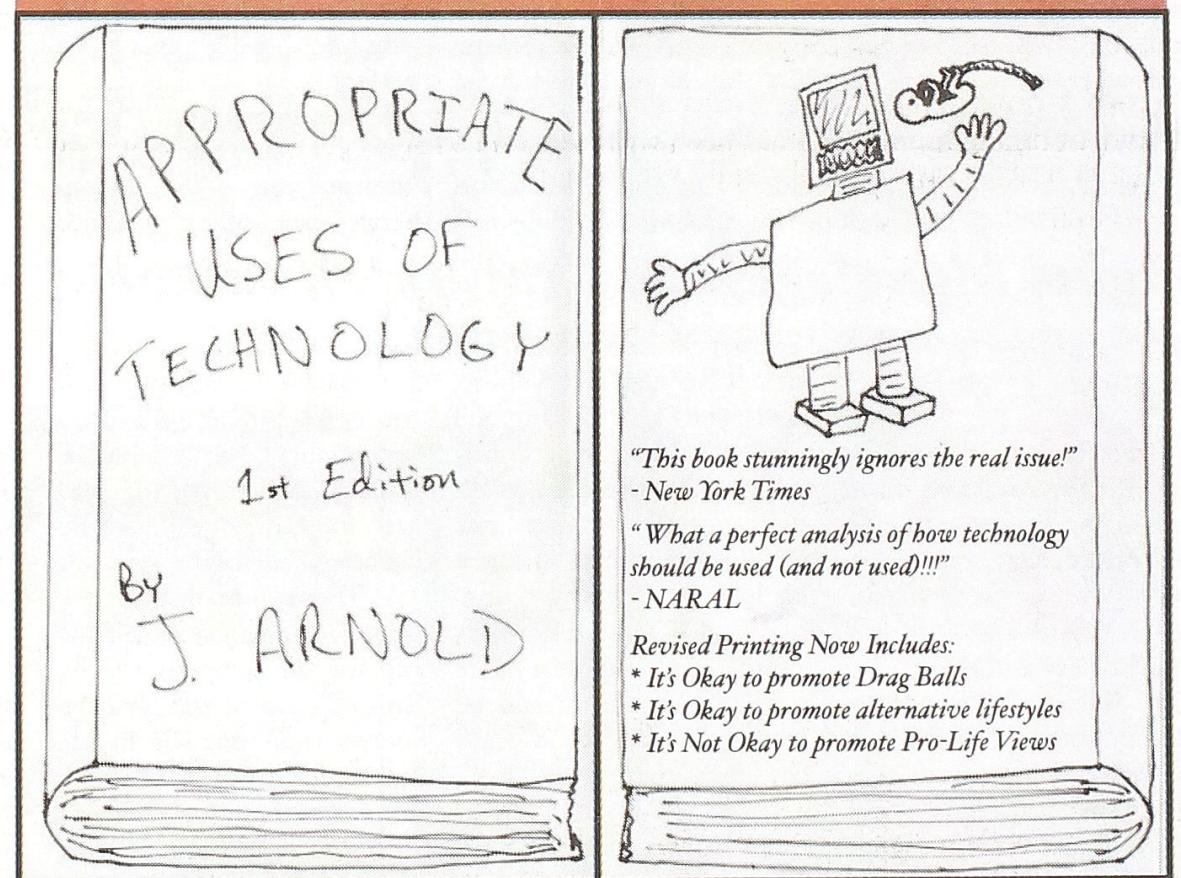 APPROPRIATE
USES OF
TECHNOLOGY
1st Edition
By
J. ARNOLD
"This book stunningly ignores the real issue!"
- New York Times
" What a perfect analysis of how technology
should be used (and not used)!!!"
- NARAL
Revised Printing Now Includes:
* It's Okay to promote Drag Balls
* It's Okay to promote alternative lifestyles
* It's Not Okay to promote Pro-Life Views